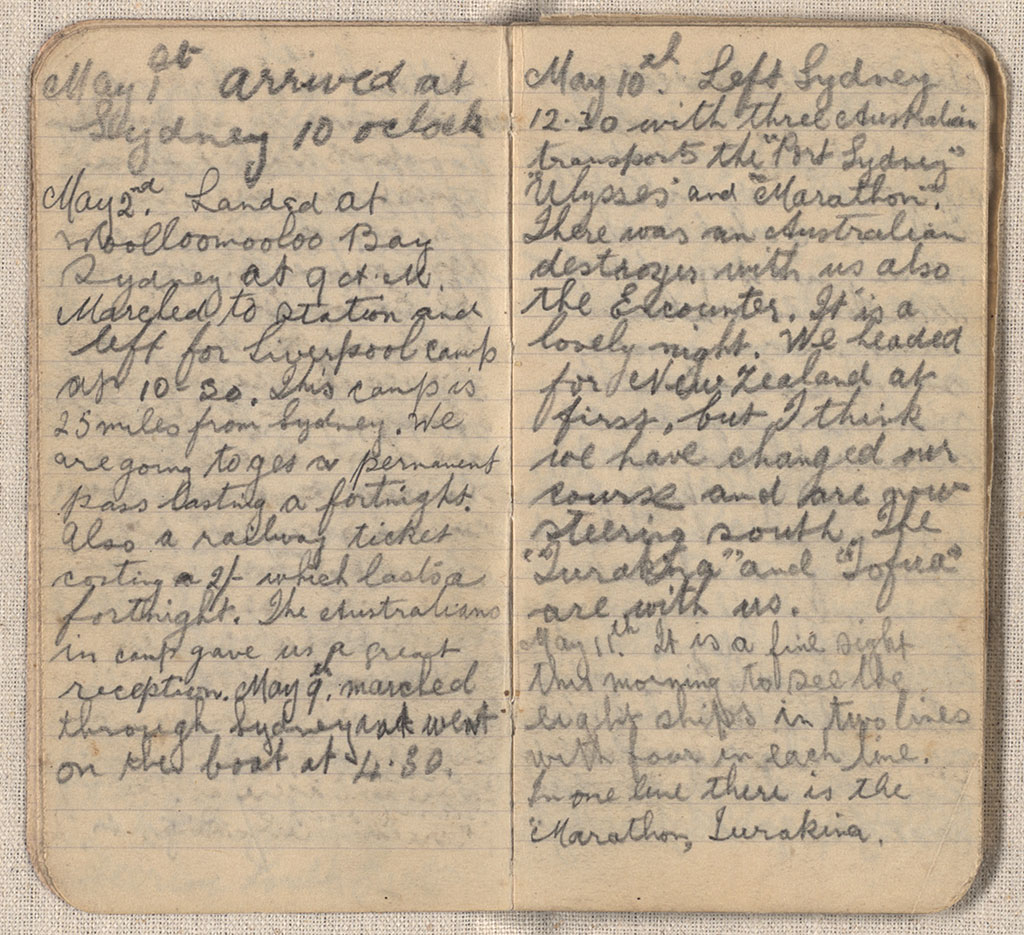 May 1st arrived at
Sydney 10 oclock
May 2nd. Landed at
Woolloomooloo Bay
Sydney at 9 A.M.
Marched to station and
left for Liverpool camp
at 10-30. This camp is
25 miles from Sydney. We
are going to get a permanent
pass lasting a fortnight.
Also a railway ticket
costing a 2/- which lasts a
fortnight. The Australians
in camp gave us a great
reception. May 9th. marched
through Sydney went
on the boat at 4.30.
May 10th. Left Sydney
12.30 with three Australian
transports the "Port Sydney"
"Ulysses" and "Marathon".
There was an Australian
destroyer with us also
the Encounter. It is a
lovely night. We headed
for New Zealand at
first, but I think
we have changed our
course and are now
steering south. The
"Turakina" and "Tofua"
are with us.
May 11th. It is a fine sight
this morning to see the
eight ships in two lines
with four in each line.
In one line there is the
"Marathon, Turakina.